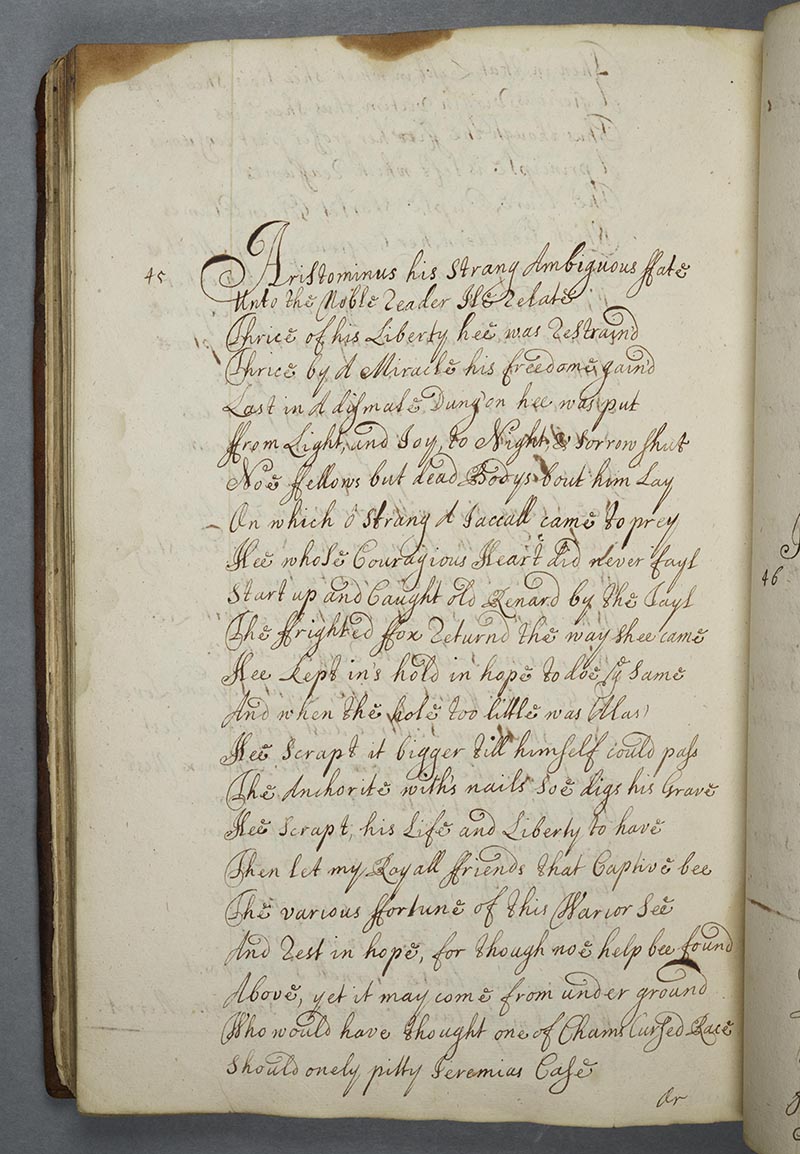 45 Aristominus his strang Ambiguous ffate
Unto the Noble Reader Ile Relate
Thrice of his Liberty hee was Restraind
Thrice by A Miracle his freedome gain'd
Last in A dismale Dung'on hee was put
ffrom Light, and Joy, to Night, & Sorrow shut
Noe ffellows but dead Bodys bout him Lay
On which ô strang A Jaccall came to prey
Hee whose Couragious Heart did never fayl
Start up and Caught old Renard by the Tayl
The ffrighted ffox Returnd the way shee came
Hee Kept in's hold in hope to doe ye same
And when the hole too little was (Alas)
Hee Scrapt it bigger till himself could pass
The Anchorite with's nails soe digs his Grave
Hee Scrapt, his Life and Liberty to have
Then let my Royall ffriends that Captive bee
The various ffortune of this Warior See
And Rest in hope, for though noe help bee found
Above, yet it may come from under ground
Who would have thought one of Chams Cursed Race
Should onely pitty Jeremias Case
Or
46